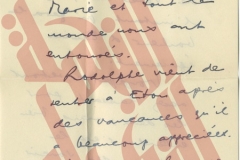 Marie et tout le
monde nous ont
entourés.
Rodolphe vient de
rentrer à Eton après
des vacances qu'il
a beaucoup appréciées.